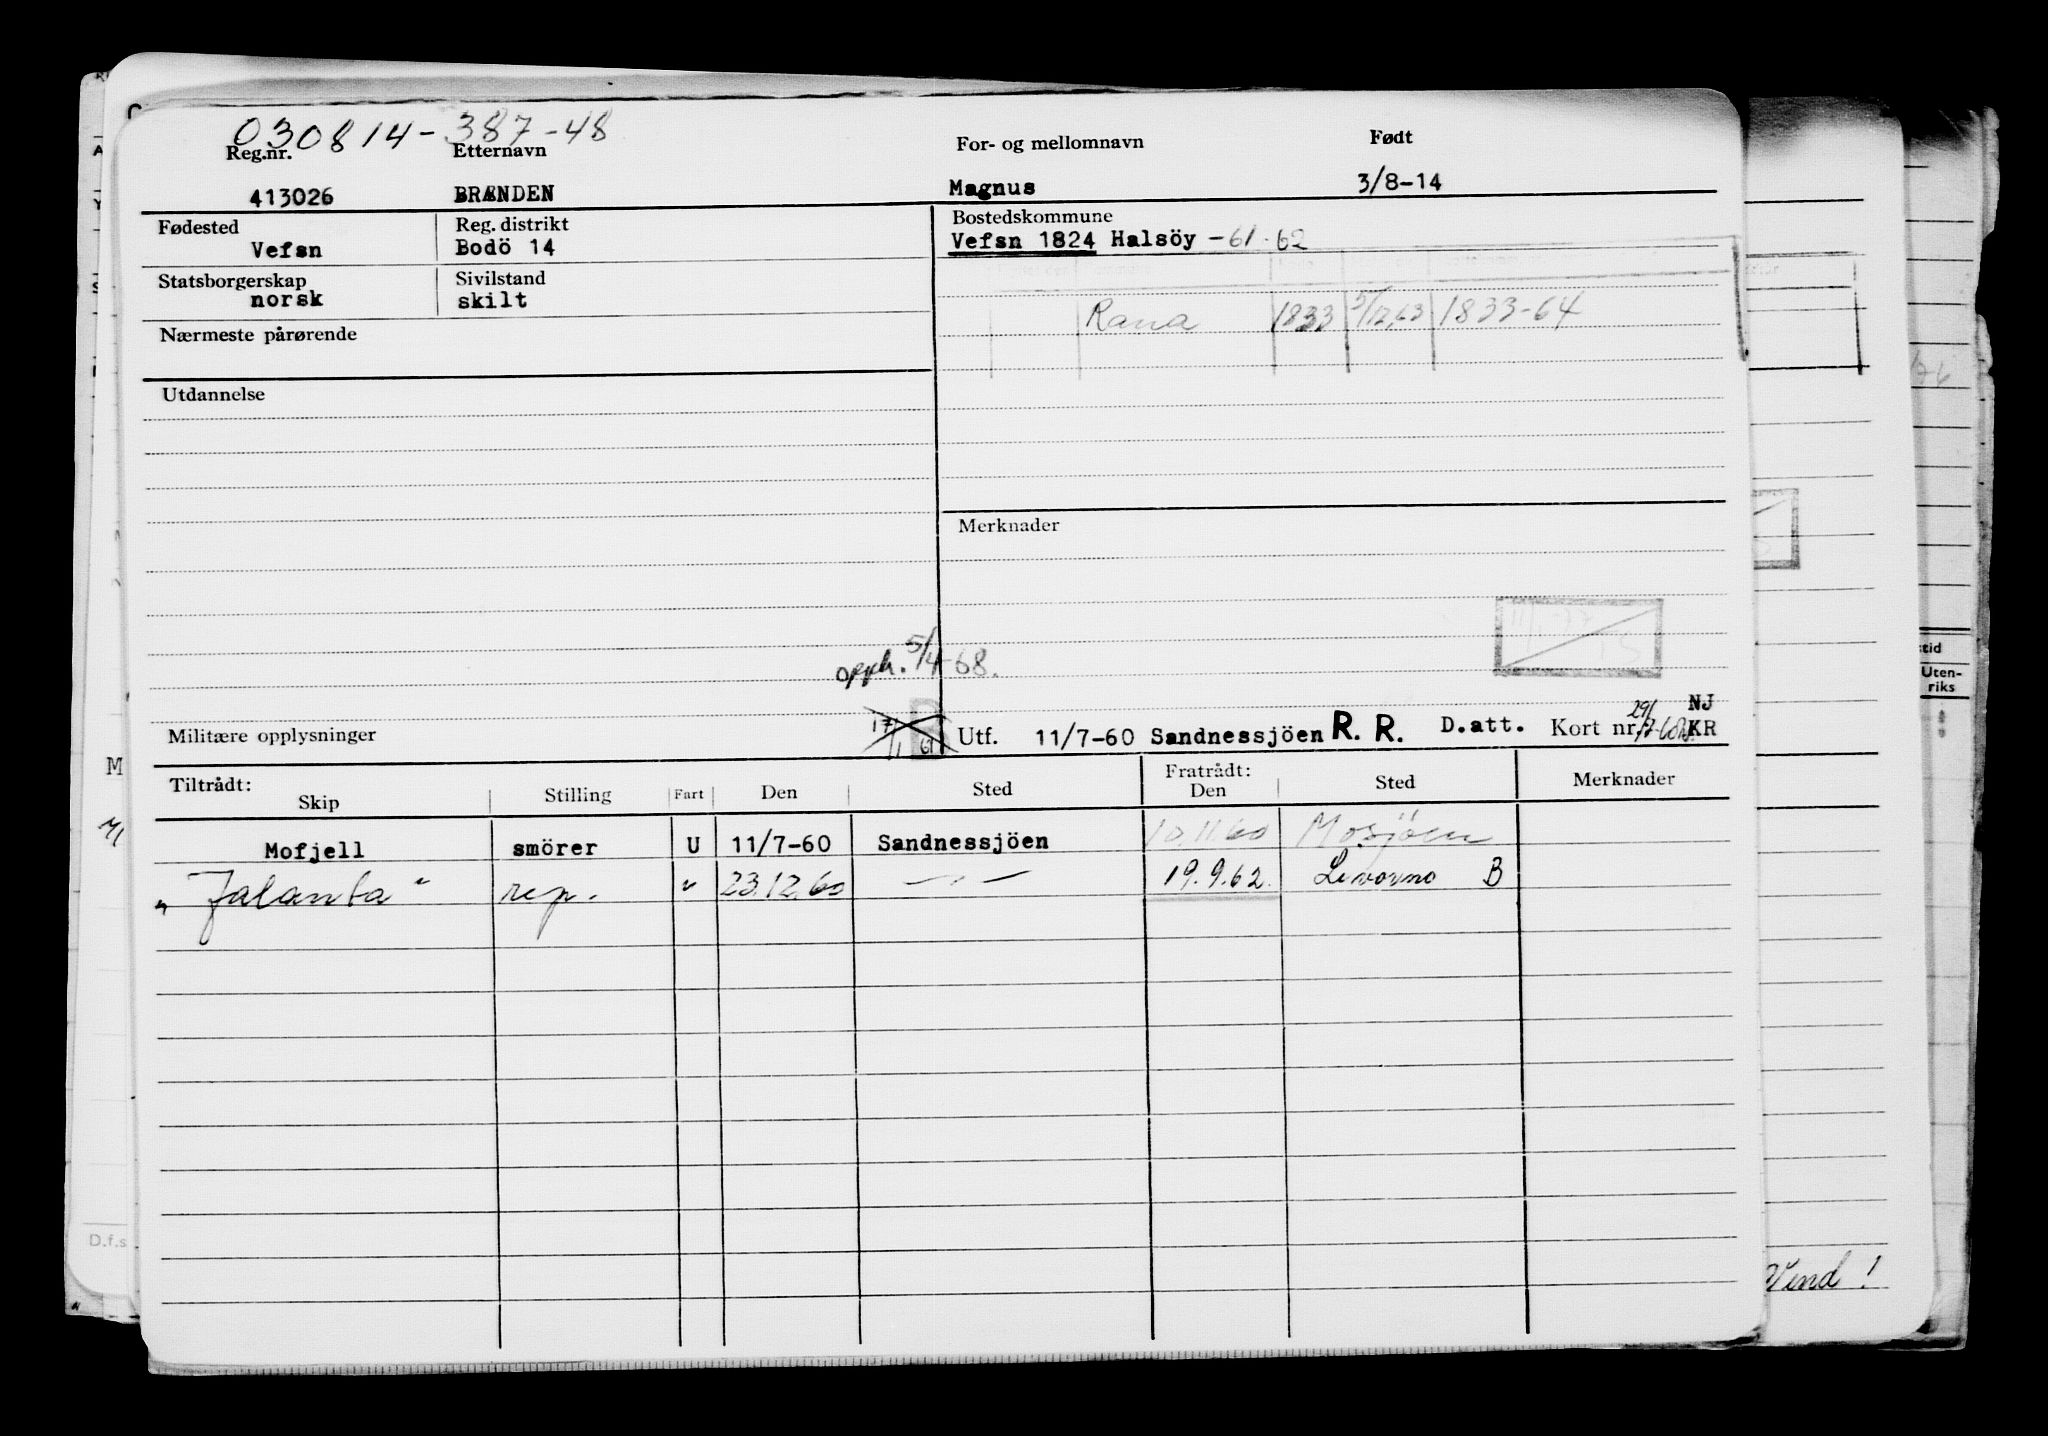 030814-387-48
Reg.nr. Etternavn For- og mellomnavn Født
413026 BRÆNDEN Magnus 3/8-14
Fødested Reg. distrikt Bostedskommune
Vefsn Bodö 14 Vefsn 1824 Halsöy -61-62
Statsborgerskap Sivilstand
norsk skilt
Rana 1833 5/12.63 1833-64
Nærmeste pårørende
Utdannelse
Merknader
opph. 5/4-68.
Militære opplysninger 17/1 61 B Utf. 11/7-60 Sandnessjöen R. R. D.att. Kort nr. NJ
KR
Tiltrådt: Fratrådt:
Skip Stilling Fart Den Sted Den Sted Merknader
Mofjell smörer U 11/7-60 Sandnessjöen 10.11.60 Mosjöen
"Jalanta" rep. " 23.12.60 — " — 19.9.62. Livorno B
tid
Uten-
riks
D.f.s
M
Vend!